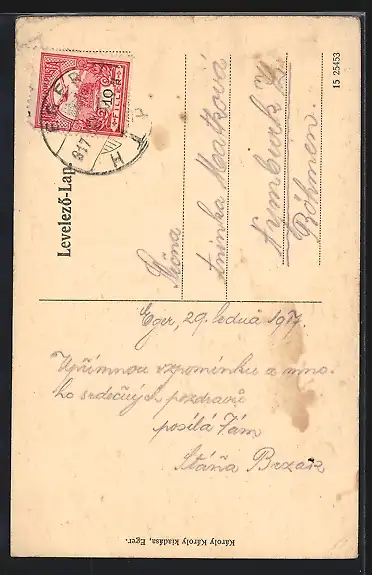 Levelező-Lap.
15 25453
EGER
917
10
FILLER
Slečna
Aninka Matková
Nymburk n/L
Böhmen.
Eger, 29. ledna 1917.
Upřímnou vzpomínku a mno-
ho srdečných pozdravů
posílá Vám
Stáňa Brzák
Károly Károly kiadása, Eger.